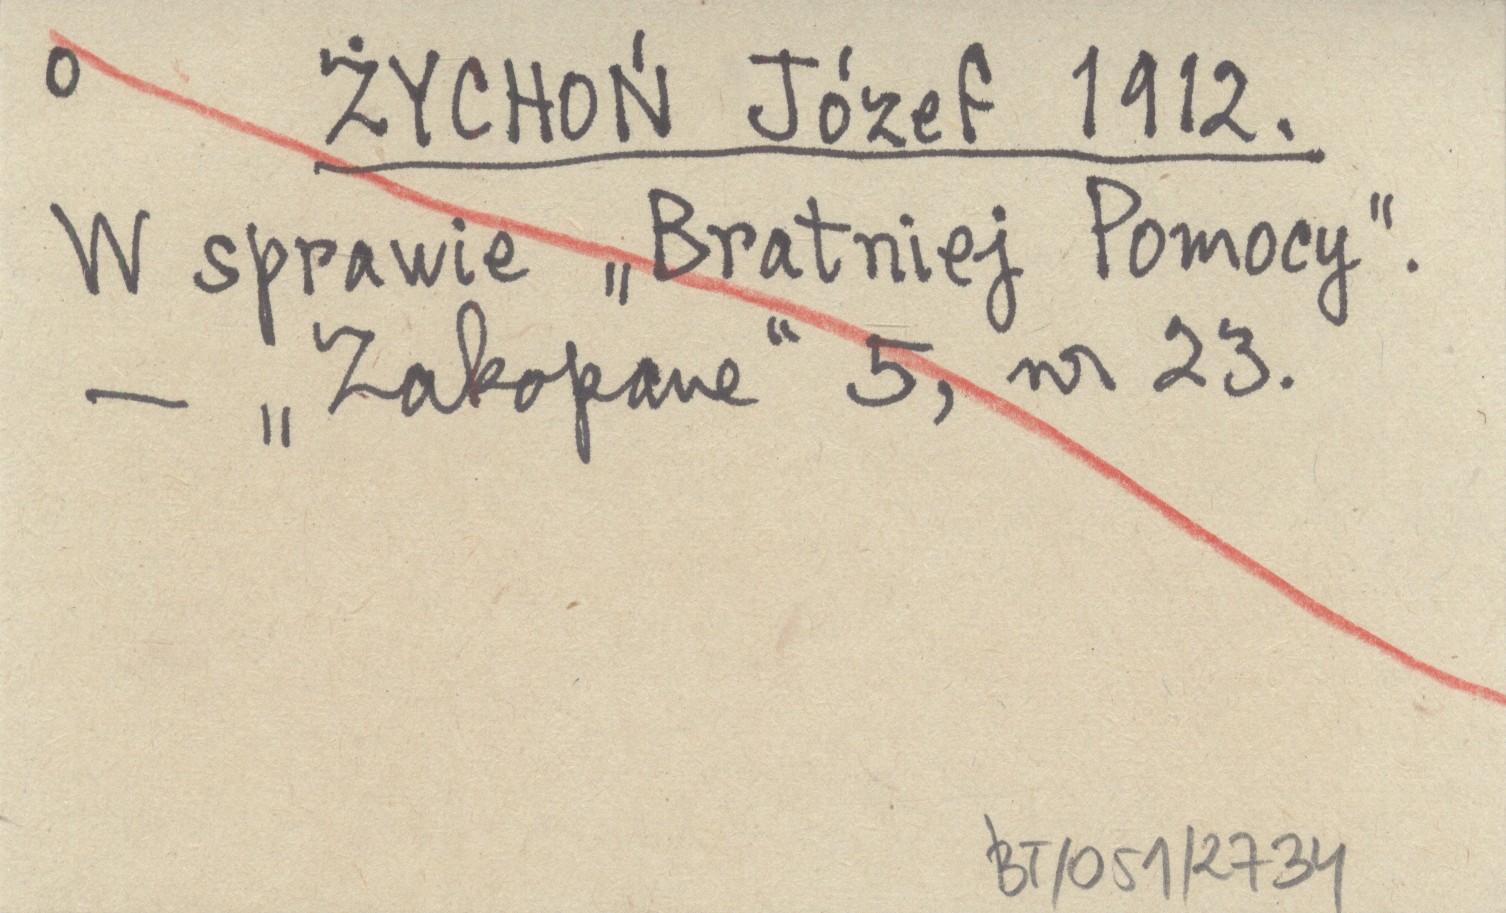 o ŻYCHOŃ Józef 1912.
W sprawie „Bratniej Pomocy“.
— „Zakopane“ 5, nr 23.
BT/051/2734